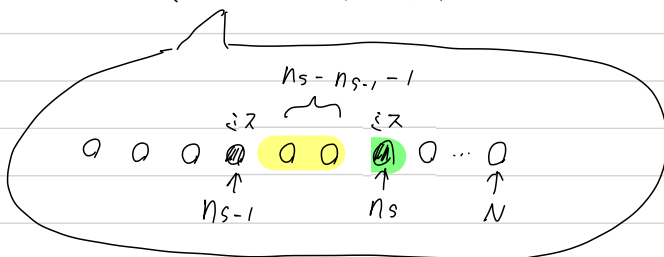 ns - ns-1 - 1
ミス ミス
...
ns-1 ns N